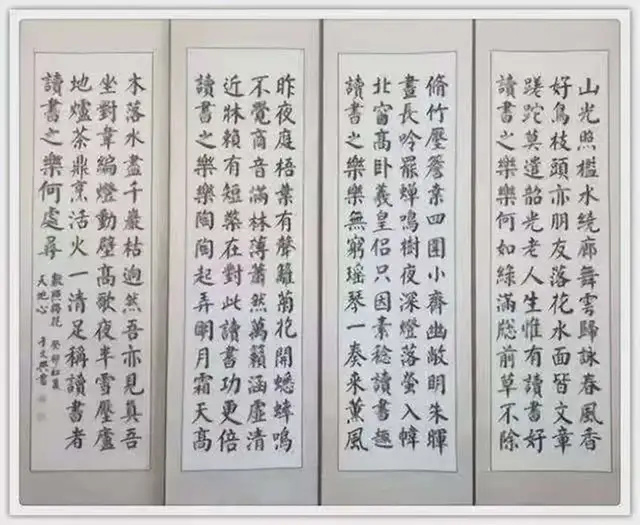 山光照檻水繞廊舞雲歸詠春風香
好鳥枝頭亦朋友落花水面皆文章
蹉跎莫遣韶光老人生惟有讀書好
讀書之樂樂何如綠滿牕前草不除
脩竹壓簷桑四圍小齋幽敞明朱暉
晝長吟罷蟬鳴樹夜深燈落螢入幃
北窗高卧羲皇侶只因素稔讀書趣
讀書之樂樂無窮瑤琴一奏來薰風
昨夜庭梧葉有聲籬菊花開蟋蟀鳴
不覺商音滿林薄蕭然萬籟涵虛清
近牀賴有短檠在對此讀書功更倍
讀書之樂樂陶陶起弄明月霜天高
木落水盡千巖枯迥然吾亦見真吾
坐對韋編燈動壁高歌夜半雪壓廬
地爐茶鼎烹活火一清足稱讀書者
讀書之樂何處尋
數點梅花 癸卯初夏
天地心 文興書